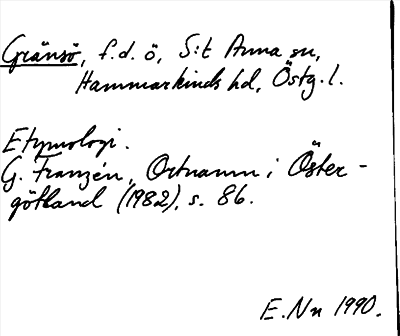 Gränsö, f.d. ö, S:t Anna sn,
Hammarkinds hd, Östg. l.
Etymologi.
G. Franzén, Ortnamn i Öster-
götland (1982), s. 86.
E. Nn 1990.